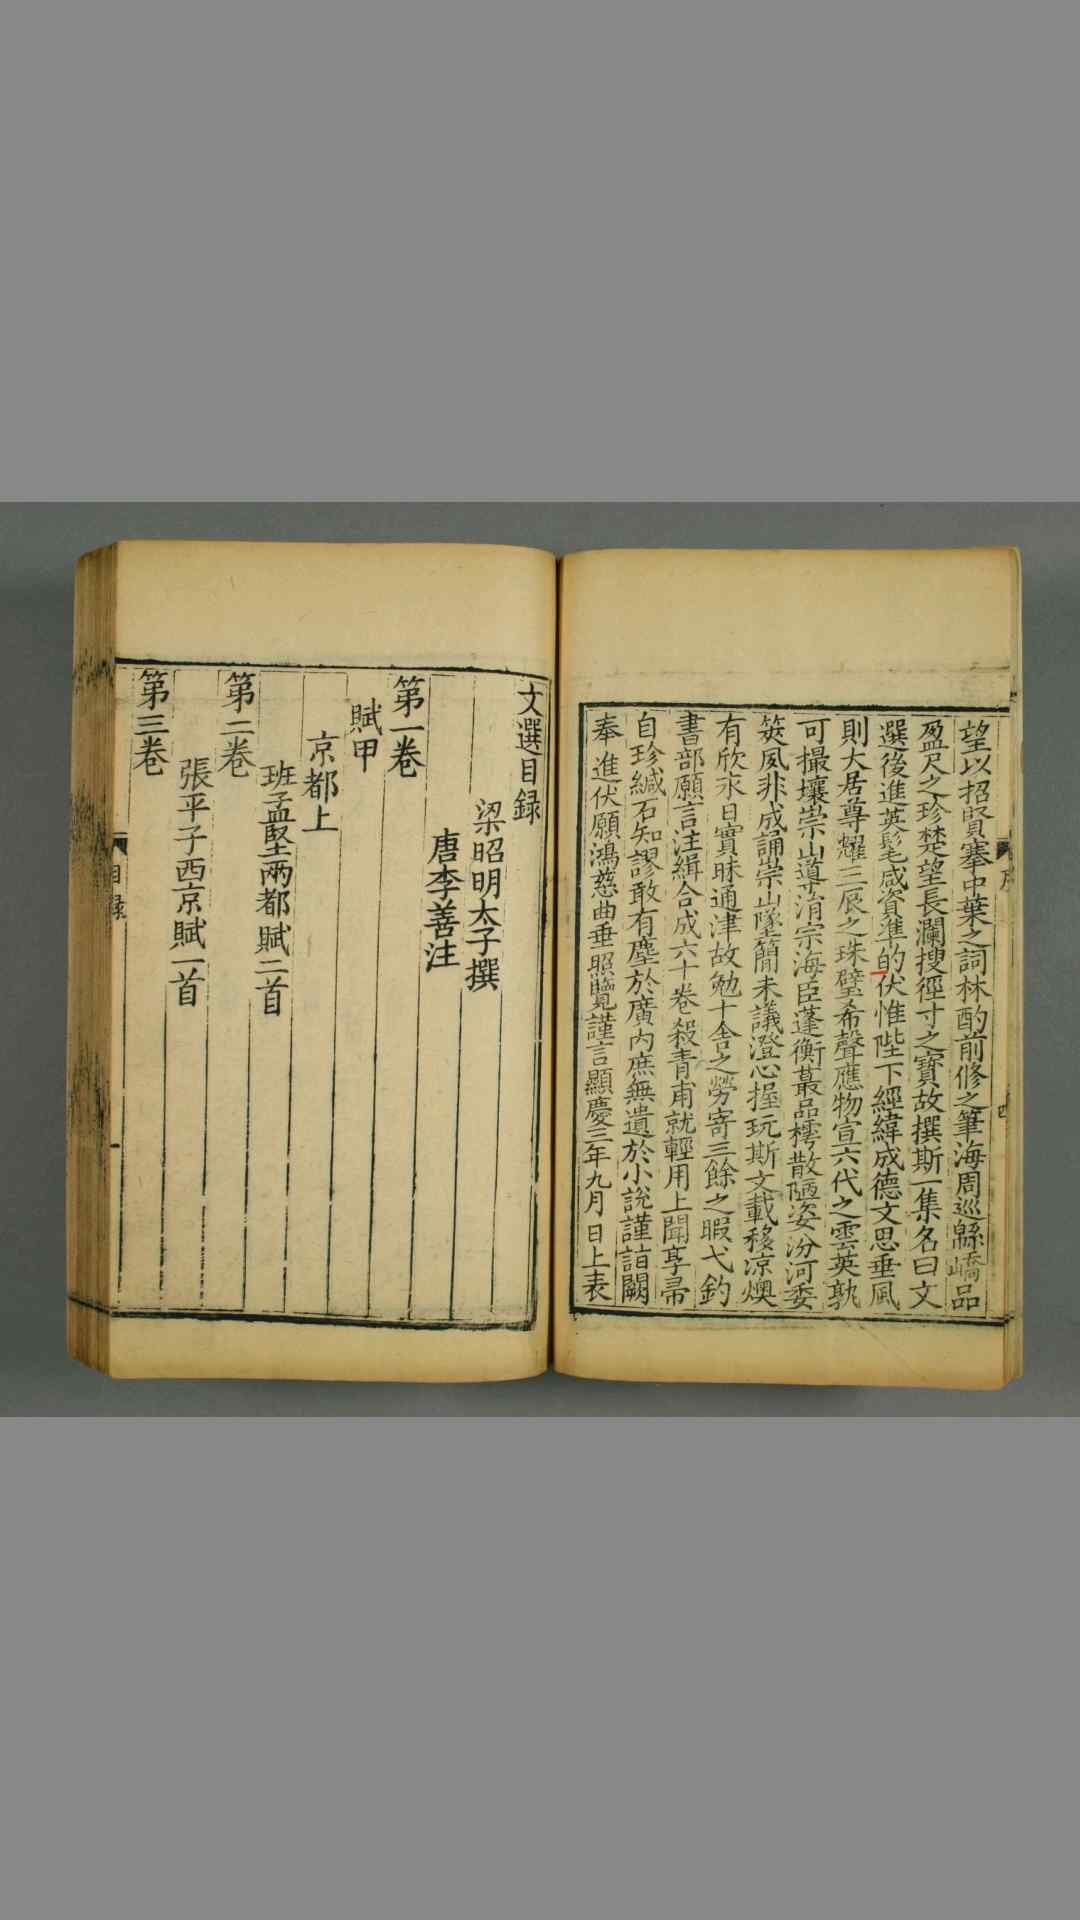 望以招賢搴中葉之詞林酌前修之筆海周巡緜嶠品
盈尺之珍楚望長瀾搜徑寸之寶故撰斯一集名曰文
選後進英髦咸資準的伏惟陛下經緯成德文思垂風
則大居尊耀三辰之珠璧希聲應物宣六代之雲英孰
可撮壤崇山導涓宗海臣蓬衡蕞品樗散陋姿汾河委
筴夙非成誦崇山墜簡未議澄心握玩斯文載移涼燠
有欣永日實昧通津故勉十舍之勞寄三餘之暇弋釣
書部願言注緝合成六十卷殺青甫就輕用上聞享帚
自珍緘石知謬敢有塵於廣內庶無遺於小說謹詣闕
奉進伏願鴻慈曲垂照覽謹言顯慶三年九月日上表
序
四
文選目録
梁昭明太子撰
唐李善注
第一卷
賦甲
京都上
班孟堅兩都賦二首
第二卷
張平子西京賦一首
第三卷
目録
一